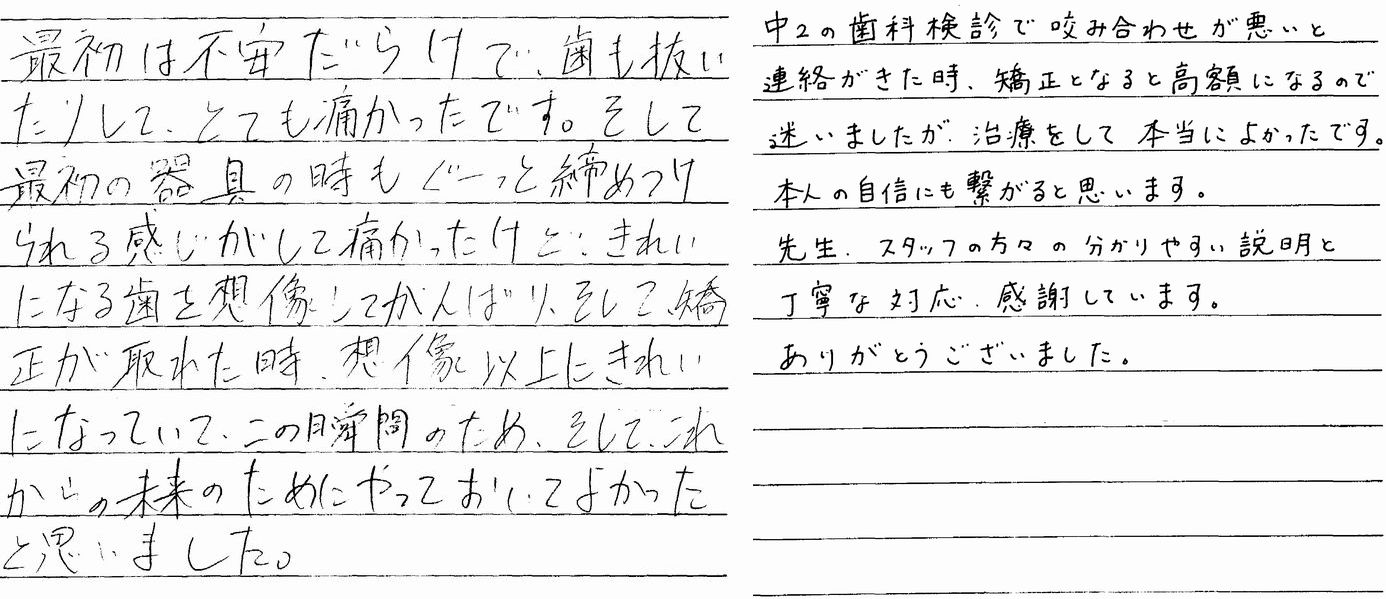 最初は不安だらけで、歯も抜い
たりして、とても痛かったです。そして
最初の器具の時もぐーっと締めつけ
られる感じがして痛かったけど、きれい
になる歯を想像してがんばり、そして、矯
正が取れた時、想像以上にきれい
になっていて、この瞬間のため、そして、これ
からの未来のためにやっておいてよかった
と思いました。
中2の歯科検診で咬み合わせが悪いと
連絡がきた時、矯正となると高額になるので
迷いましたが、治療をして本当によかったです。
本人の自信にも繋がると思います。
先生、スタッフの方々の分かりやすい説明と
丁寧な対応、感謝しています。
ありがとうございました。